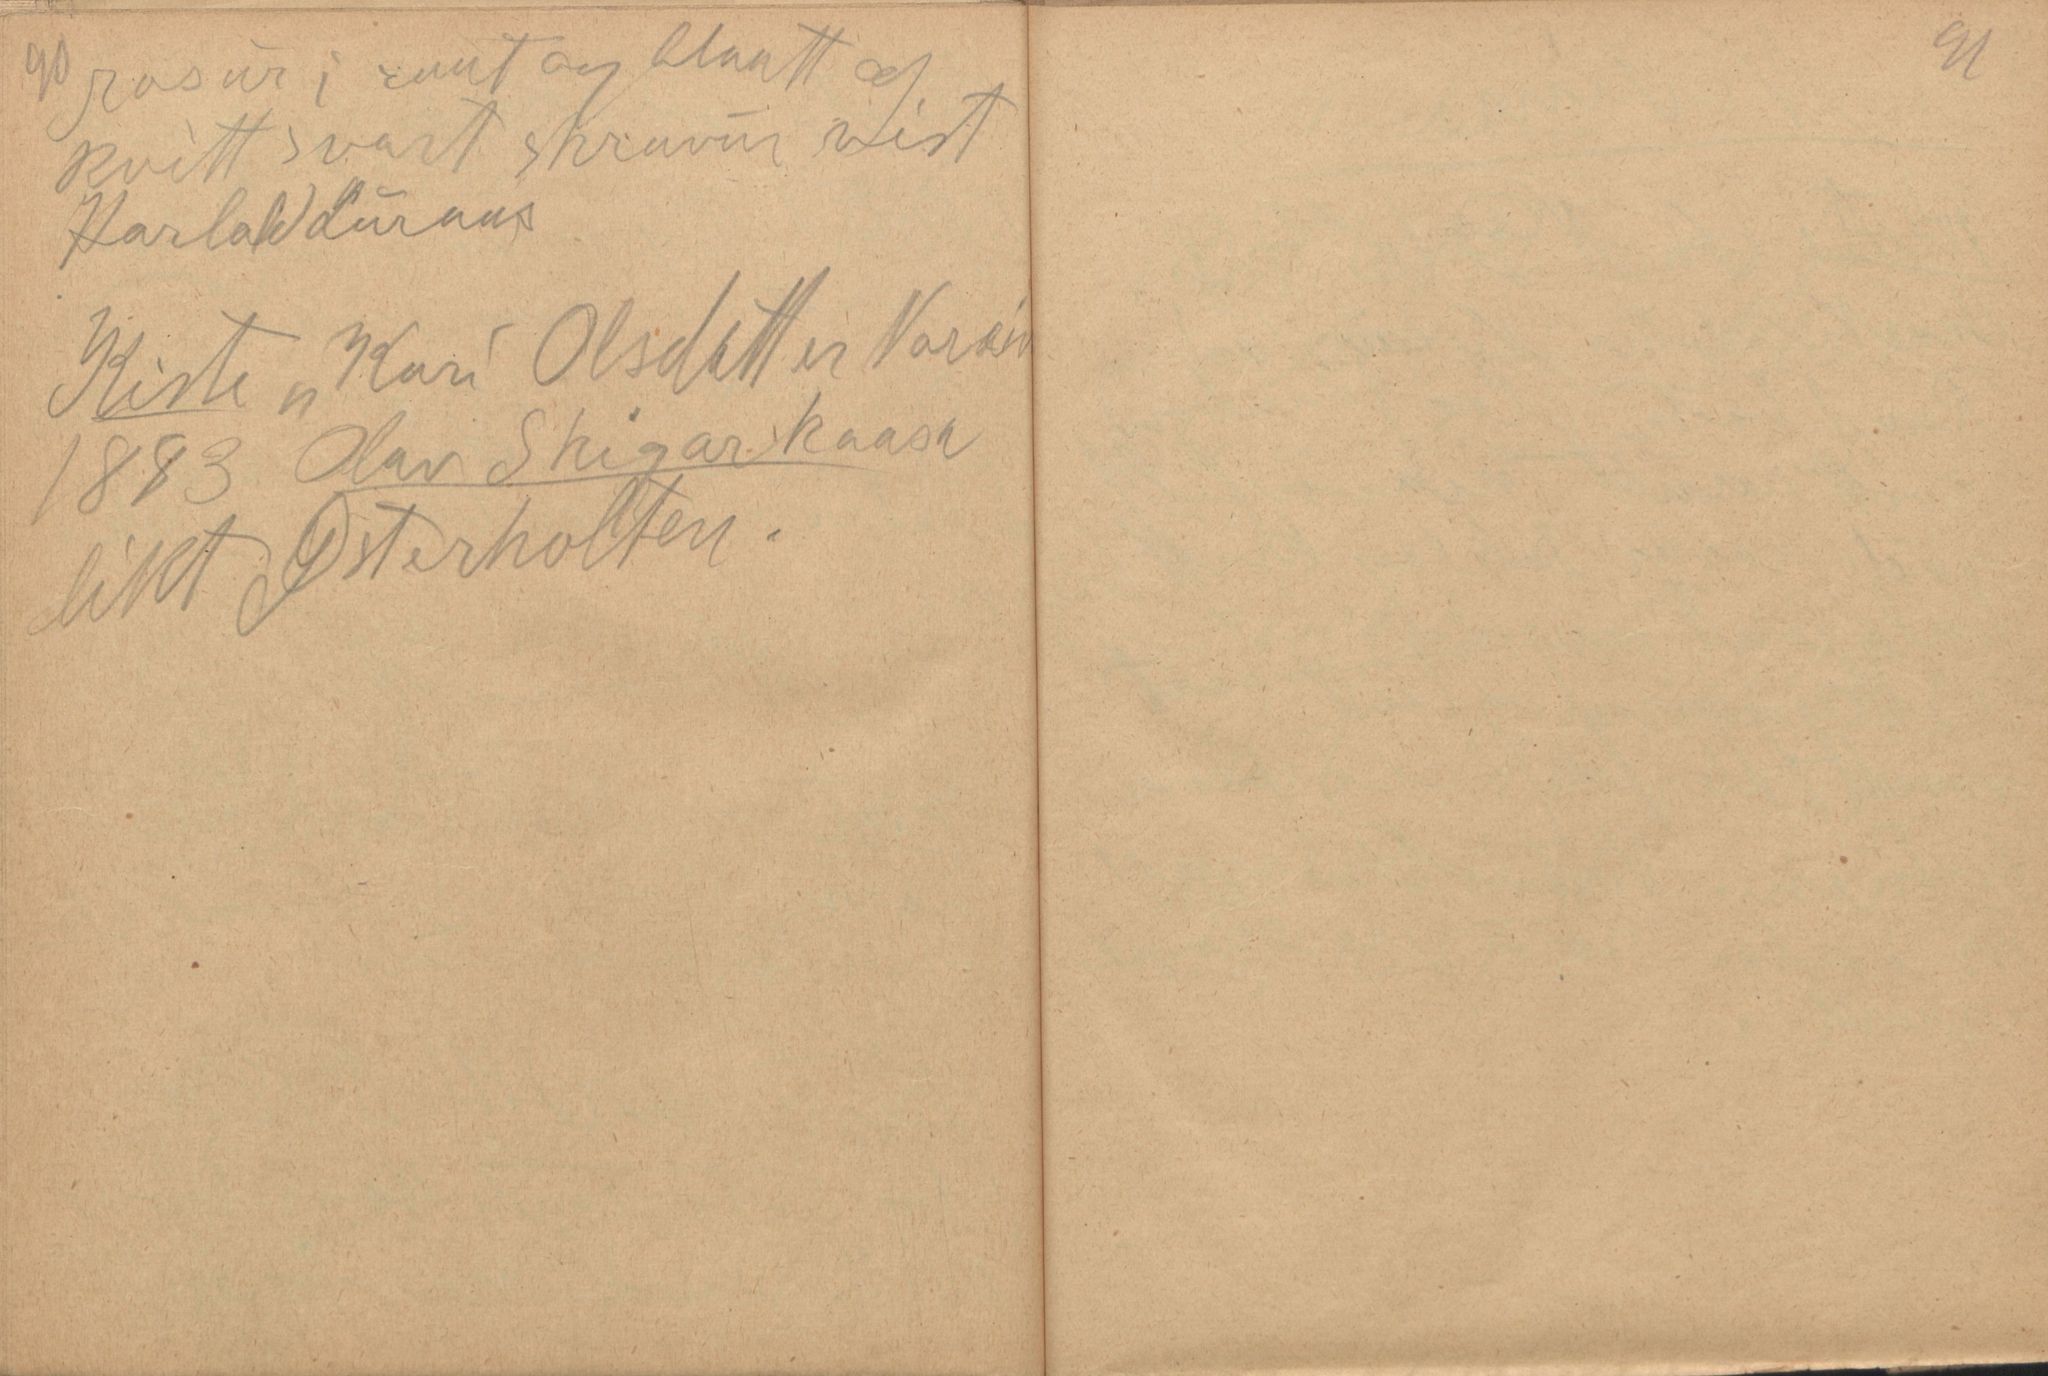 90 rosur i raut og blaatt og
kvitt svart skravur vist
Harlald Luraas
Kiste „Kari Olsdatter
1883 Olav Skigarkaasa
likt Østerholten.
91